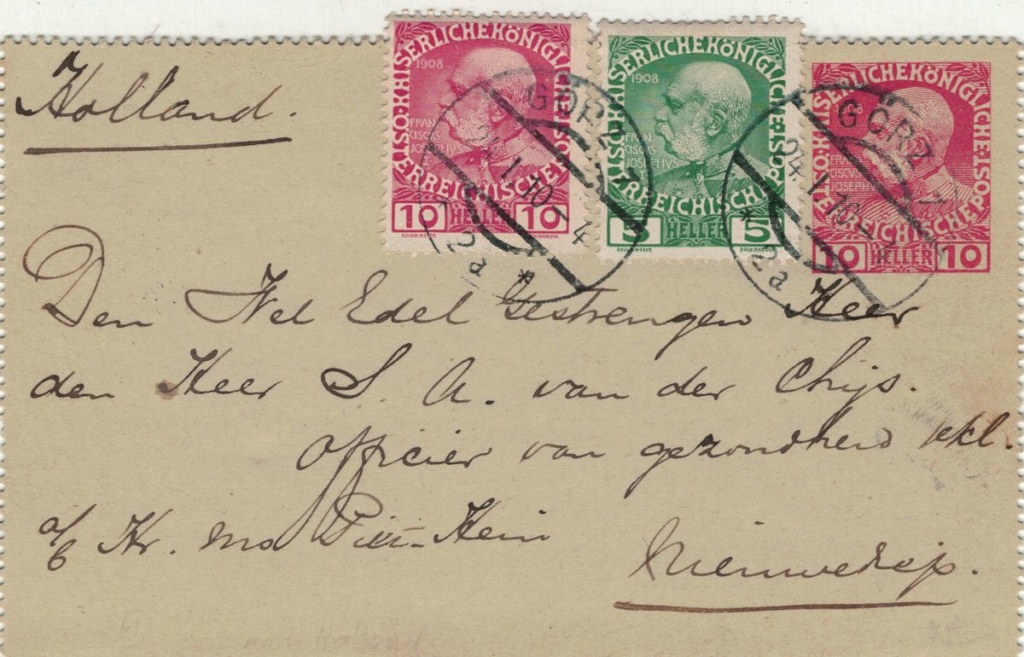 Holland.
KAISERLICHEKÖNIGLICHE
ÖSTERREICHISCHE POST
1908
FRAN
CISCVS
JOSEPHVS I
10 HELLER 10
KAISERLICHEKÖNIGLICHE
ÖSTERREICHISCHE POST
1908
FRAN
CISCVS
JOSEPHVS I
5 HELLER 5
KAISERLICHEKÖNIGLICHE POST
ÖSTERREICHISCHE
FRAN
CISCVS
JOSEPHVS
10 HELLER 10
GÖRZ 1
24.1.10-4
* 2a *
GÖRZ 1
24.1.10-4
* 2a *
Den Wel Edel Gestrengen Heer
den Heer S. A. van der Chijs.
officier van gezondheid 1e kl.
a/b Hr. Ms Piet-Hein
Nieuwediep.